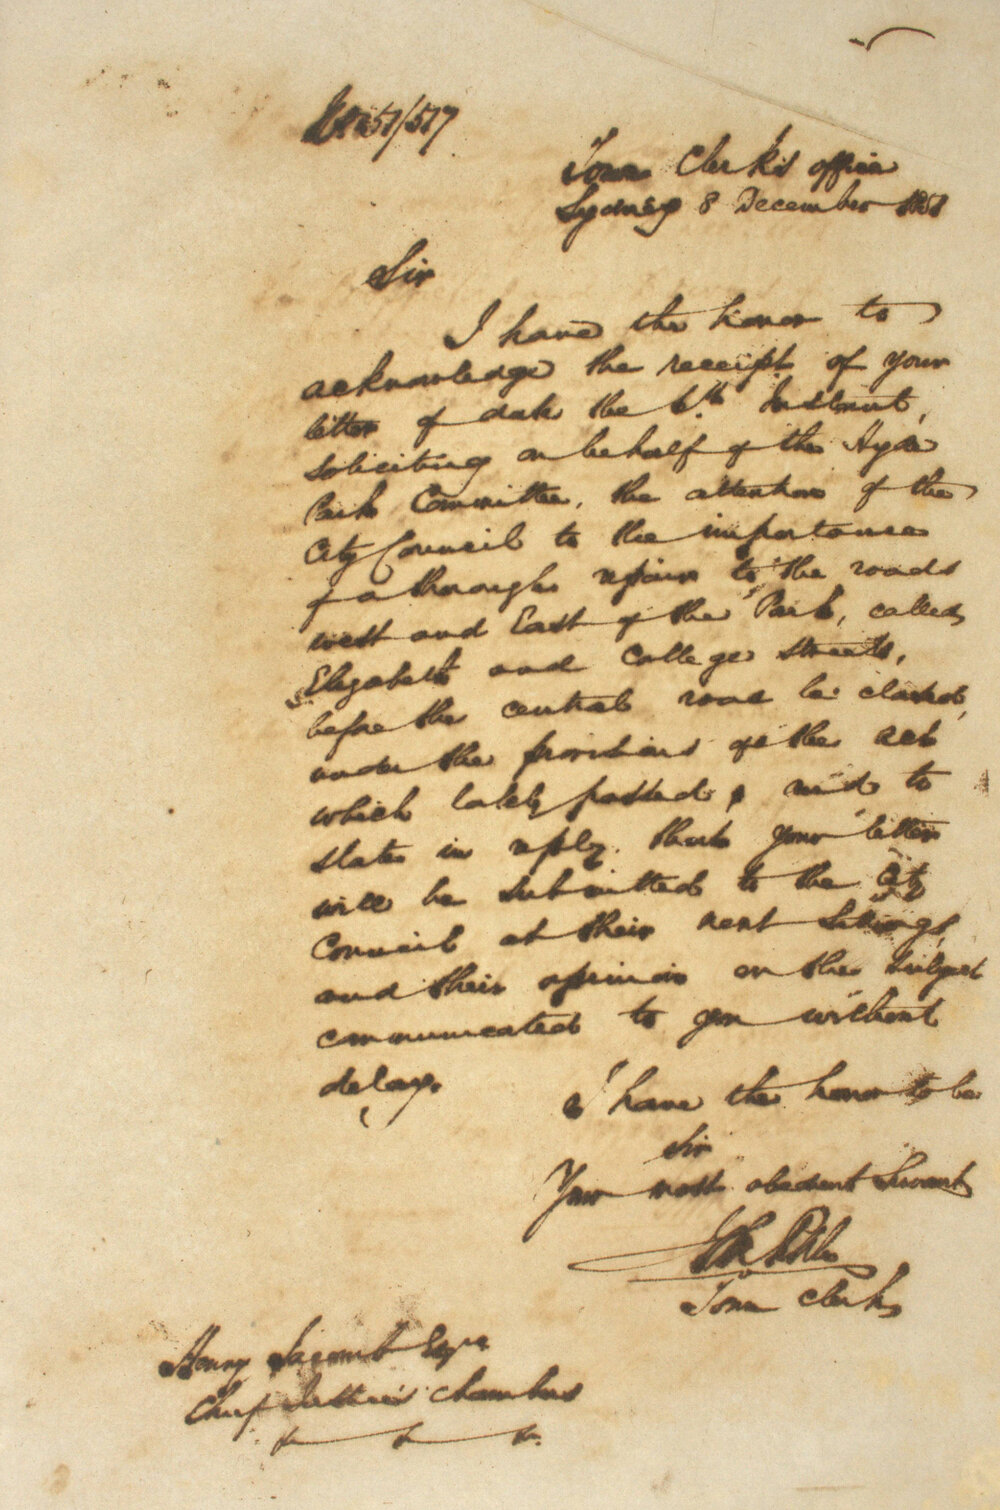 51/517
Town Clerk's office
Sydney 8 December 1851
Sir
I have the honor to
acknowledge the receipt of your
letter of date the 6th Instant,
soliciting on behalf of the Hyde
Park Committee, the attention of the
City Council to the importance
of a thorough repair to the roads
west and East of the Park, called
Elizabeth and College Streets,
before the central road be closed,
under the provisions of the act
which lately passed, and to
state in reply that your letter
will be submitted to the City
Council at their next Sittings,
and their opinion on the subject
communicated to you without
delay.
I have the honor to be
Sir
Your most obedient Servant
Town Clerk
Henry Jacomb Esqre
Chief Justice's Chambers